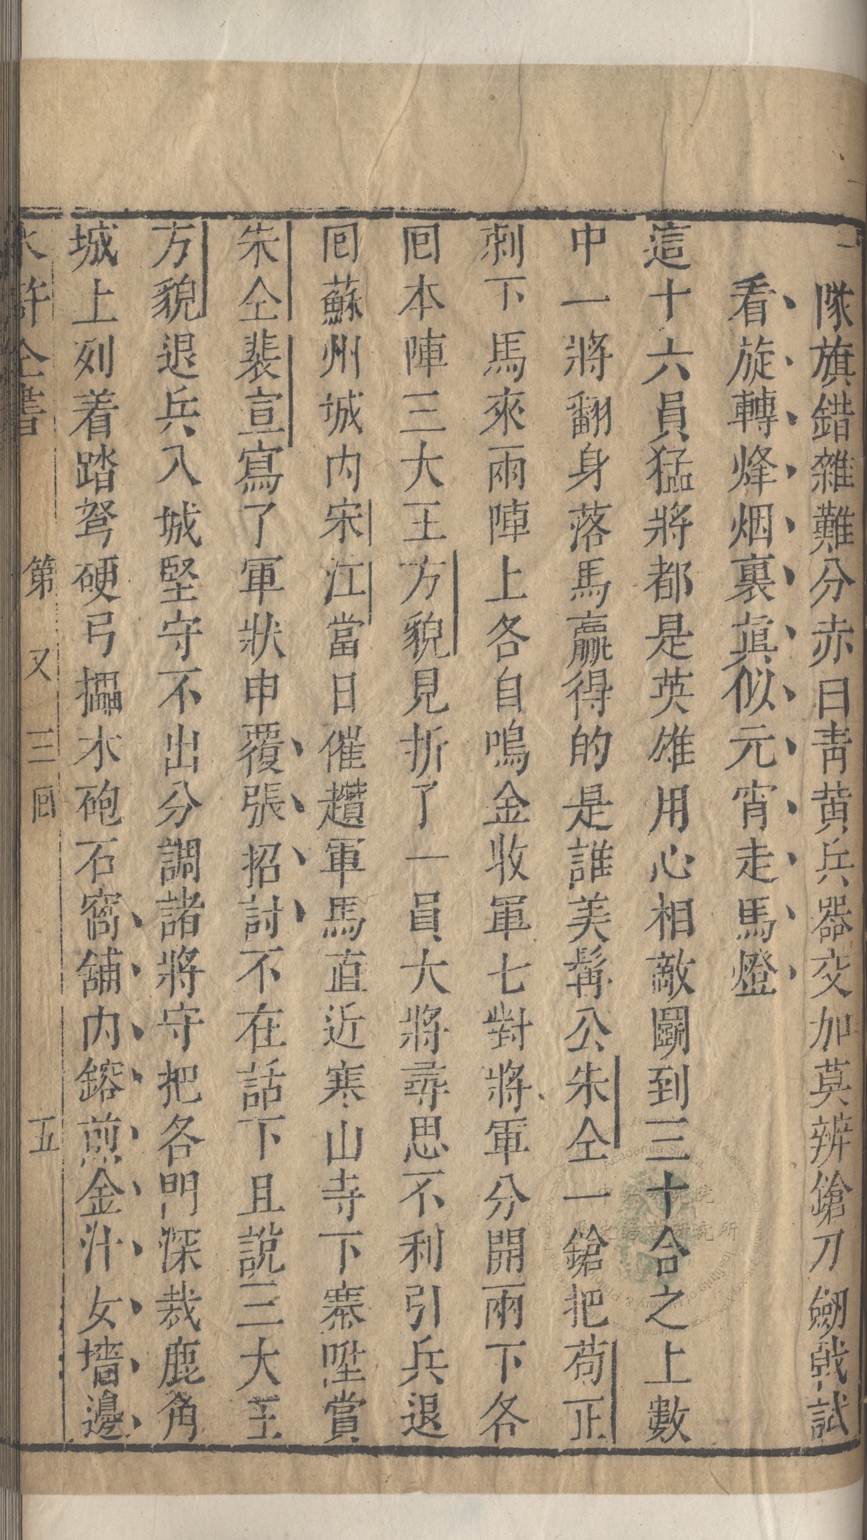 隊旗錯雜難分赤白青黃兵器交加莫辨鎗刀劒戟試
看旋轉烽烟裏真似元宵走馬燈
這十六員猛將都是英雄用心相敵鬬到三十合之上數
中一將翻身落馬贏得的是誰美髯公朱仝一鎗把苟正
刺下馬來兩陣上各自鳴金收軍七對將軍分開兩下各
回本陣三大王方貌見折了一員大將尋思不利引兵退
回蘇州城内宋江當日催趲軍馬直近寒山寺下寨陞賞
朱仝裴宣寫了軍狀申覆張招討不在話下且說三大王
方貌退兵入城堅守不出分調諸將守把各門深栽鹿角
城上列着踏弩硬弓擂木砲石窩舖内鎔煎金汁女墻邊
水滸全書 第又三回 五